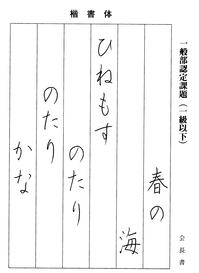 楷書体
一般部認定課題（一級以下）
会長書
春の
海
ひねもす
のたり
のたり
かな